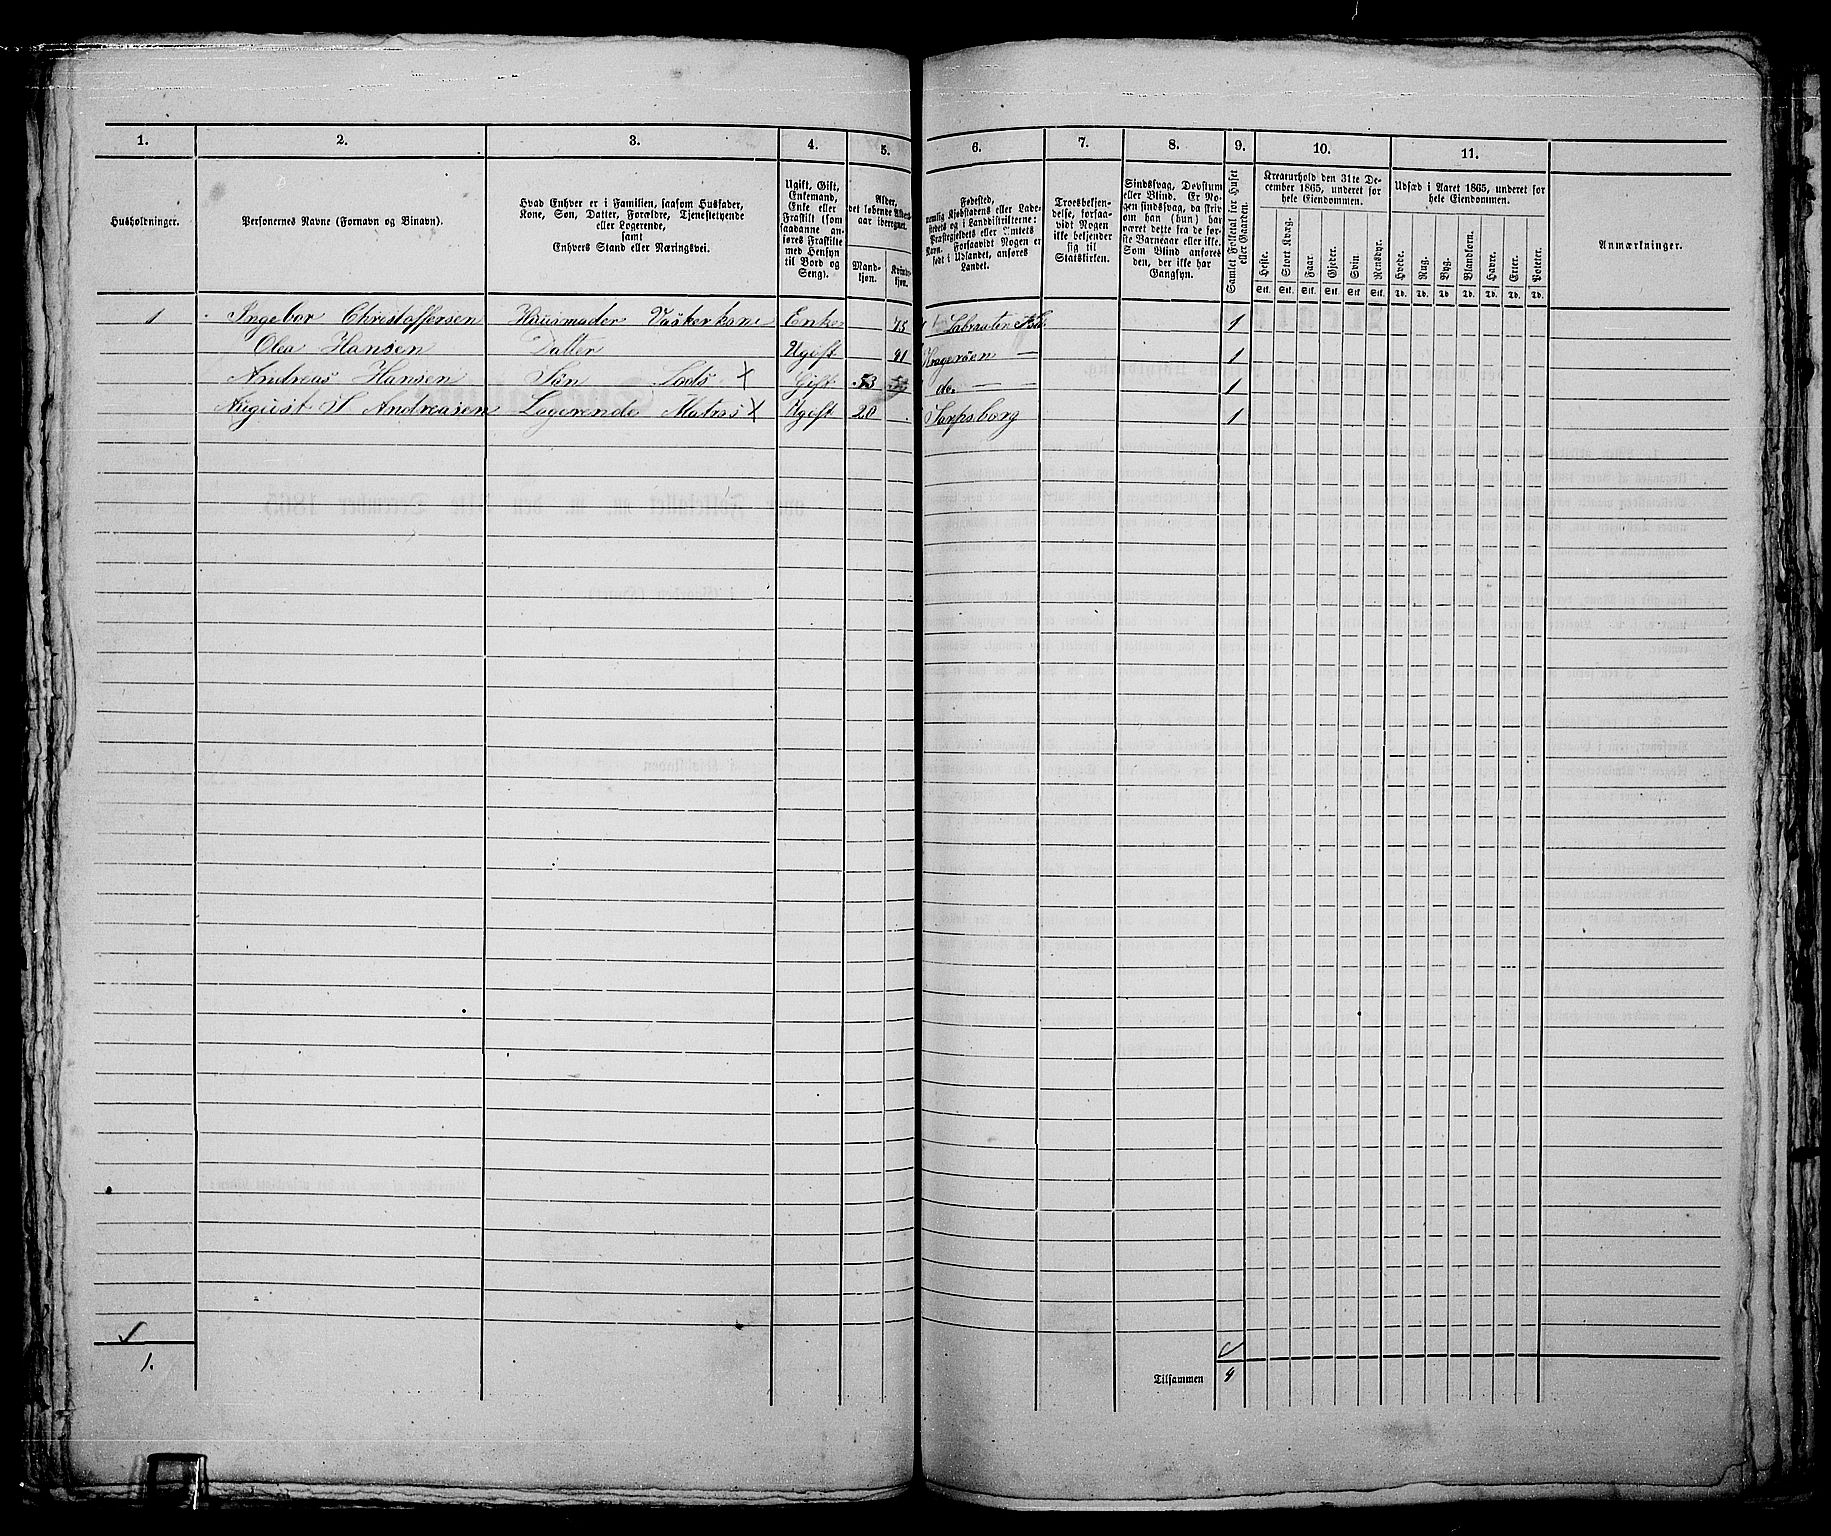 1. 2. 3. 4. 5. 6. 7. 8. 9. 10. 11.
Husholdninger.
Personernes Navne (Fornavn og Binavn).
Hvad Enhver er i Familien, saasom Husfader,
Kone, Søn, Datter, Forældre, Tjenestetyende
eller Logerende,
samt
Enhvers Stand eller Næringsvei.
Ugift, Gift,
Enkemand,
Enke eller
Fraskilt (som
saadanne an-
føres Fraskilte
med Hensyn
til Bord og
Seng).
Alder,
det løbende Alders-
aar iberegnet.
Mand-
kjøn.
Kvinde-
kjøn.
Fødested,
nemlig Kjøbstadens eller Lade-
stedets og i Landdistrikterne:
Præstegjeldets eller Amtets
Navn. Forsaavidt Nogen er
født i Udlandet, anføres
Landet.
Troesbekjen-
delse, forsaa-
vidt Nogen
ikke bekjender
sig til
Statskirken.
Sindssvag, Døvstum
eller Blind. Er No-
gen sindssvag, da skriv
om han (hun) har
været dette fra de for-
ste Barneaar eller ikke.
Som Blind anføres
den, der ikke har
Gangsyn.
Samlet Folketal for Huset
eller Gaarden.
Kreaturhold den 31te De-
cember 1865, underet for
hele Eiendommen.
Heste. Stort Kvæg. Faar. Gjeder. Svin. Rensdyr.
Stk. Stk. Stk. Stk. Stk. Stk.
Udsæd i Aaret 1865, underet for
hele Eiendommen.
Hvede. Rug. Byg. Blandkorn. Havre. Erter. Poteter.
Td. Td. Td. Td. Td. Td. Td.
Anmærkninger.
1 Ingebor Christoffersen Huusmoder Vaskerkone Enke 75 1
Olea Hansen Datter Ugift 41 Kragerøen — 1
Andreas Hansen Søn Lods X Gift 53 do. — 1
August S Andreasen Logerende Matros X Ugift 20 Sarpsborg 1
1.
Tilsammen 4